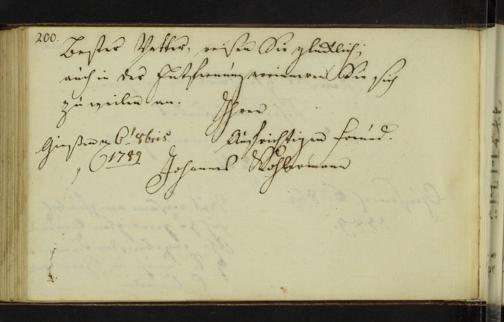 200.
Bester Vetter, reisen Sie glücklich;
auch in der Entfernung erinnern Sie sich
zuweilen an. Ihren
Gießen 6' 8bris Aufrichtigen Freund.
1789 Johannes